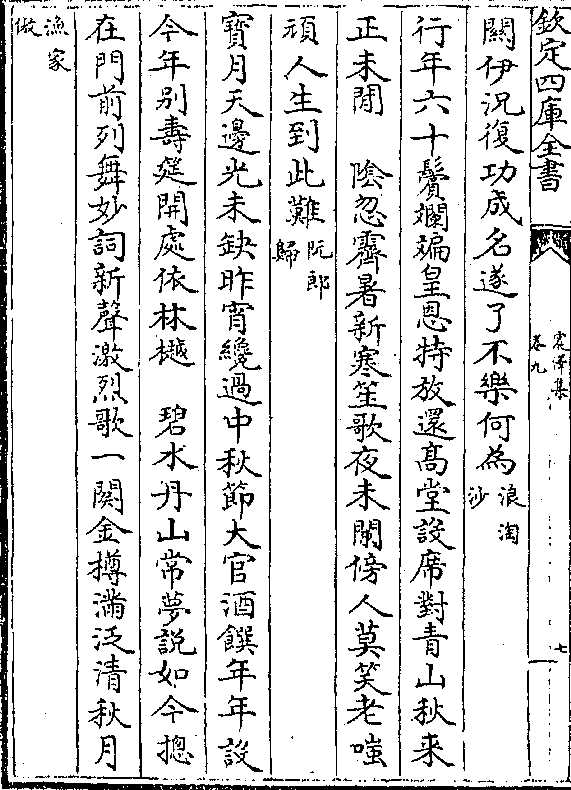 欽定四庫全書
震澤集
卷九
七
闕伊況復功成名遂了不樂何為浪淘沙
行年六十鬢斕斒皇恩特放還髙堂設席對青山秋来
正未閒　陰忽霽暑新寒笙歌夜未闌傍人莫笑老嗤
頑人生到此難阮郎歸
寳月天邊光未缺昨宵纔過中秋節大官酒饌年年設
今年别壽筵開處依林樾　碧水丹山常夢説如今揔
在門前列舞妙詞新聲激烈歌一闋金樽滿泛清秋月
漁家傲